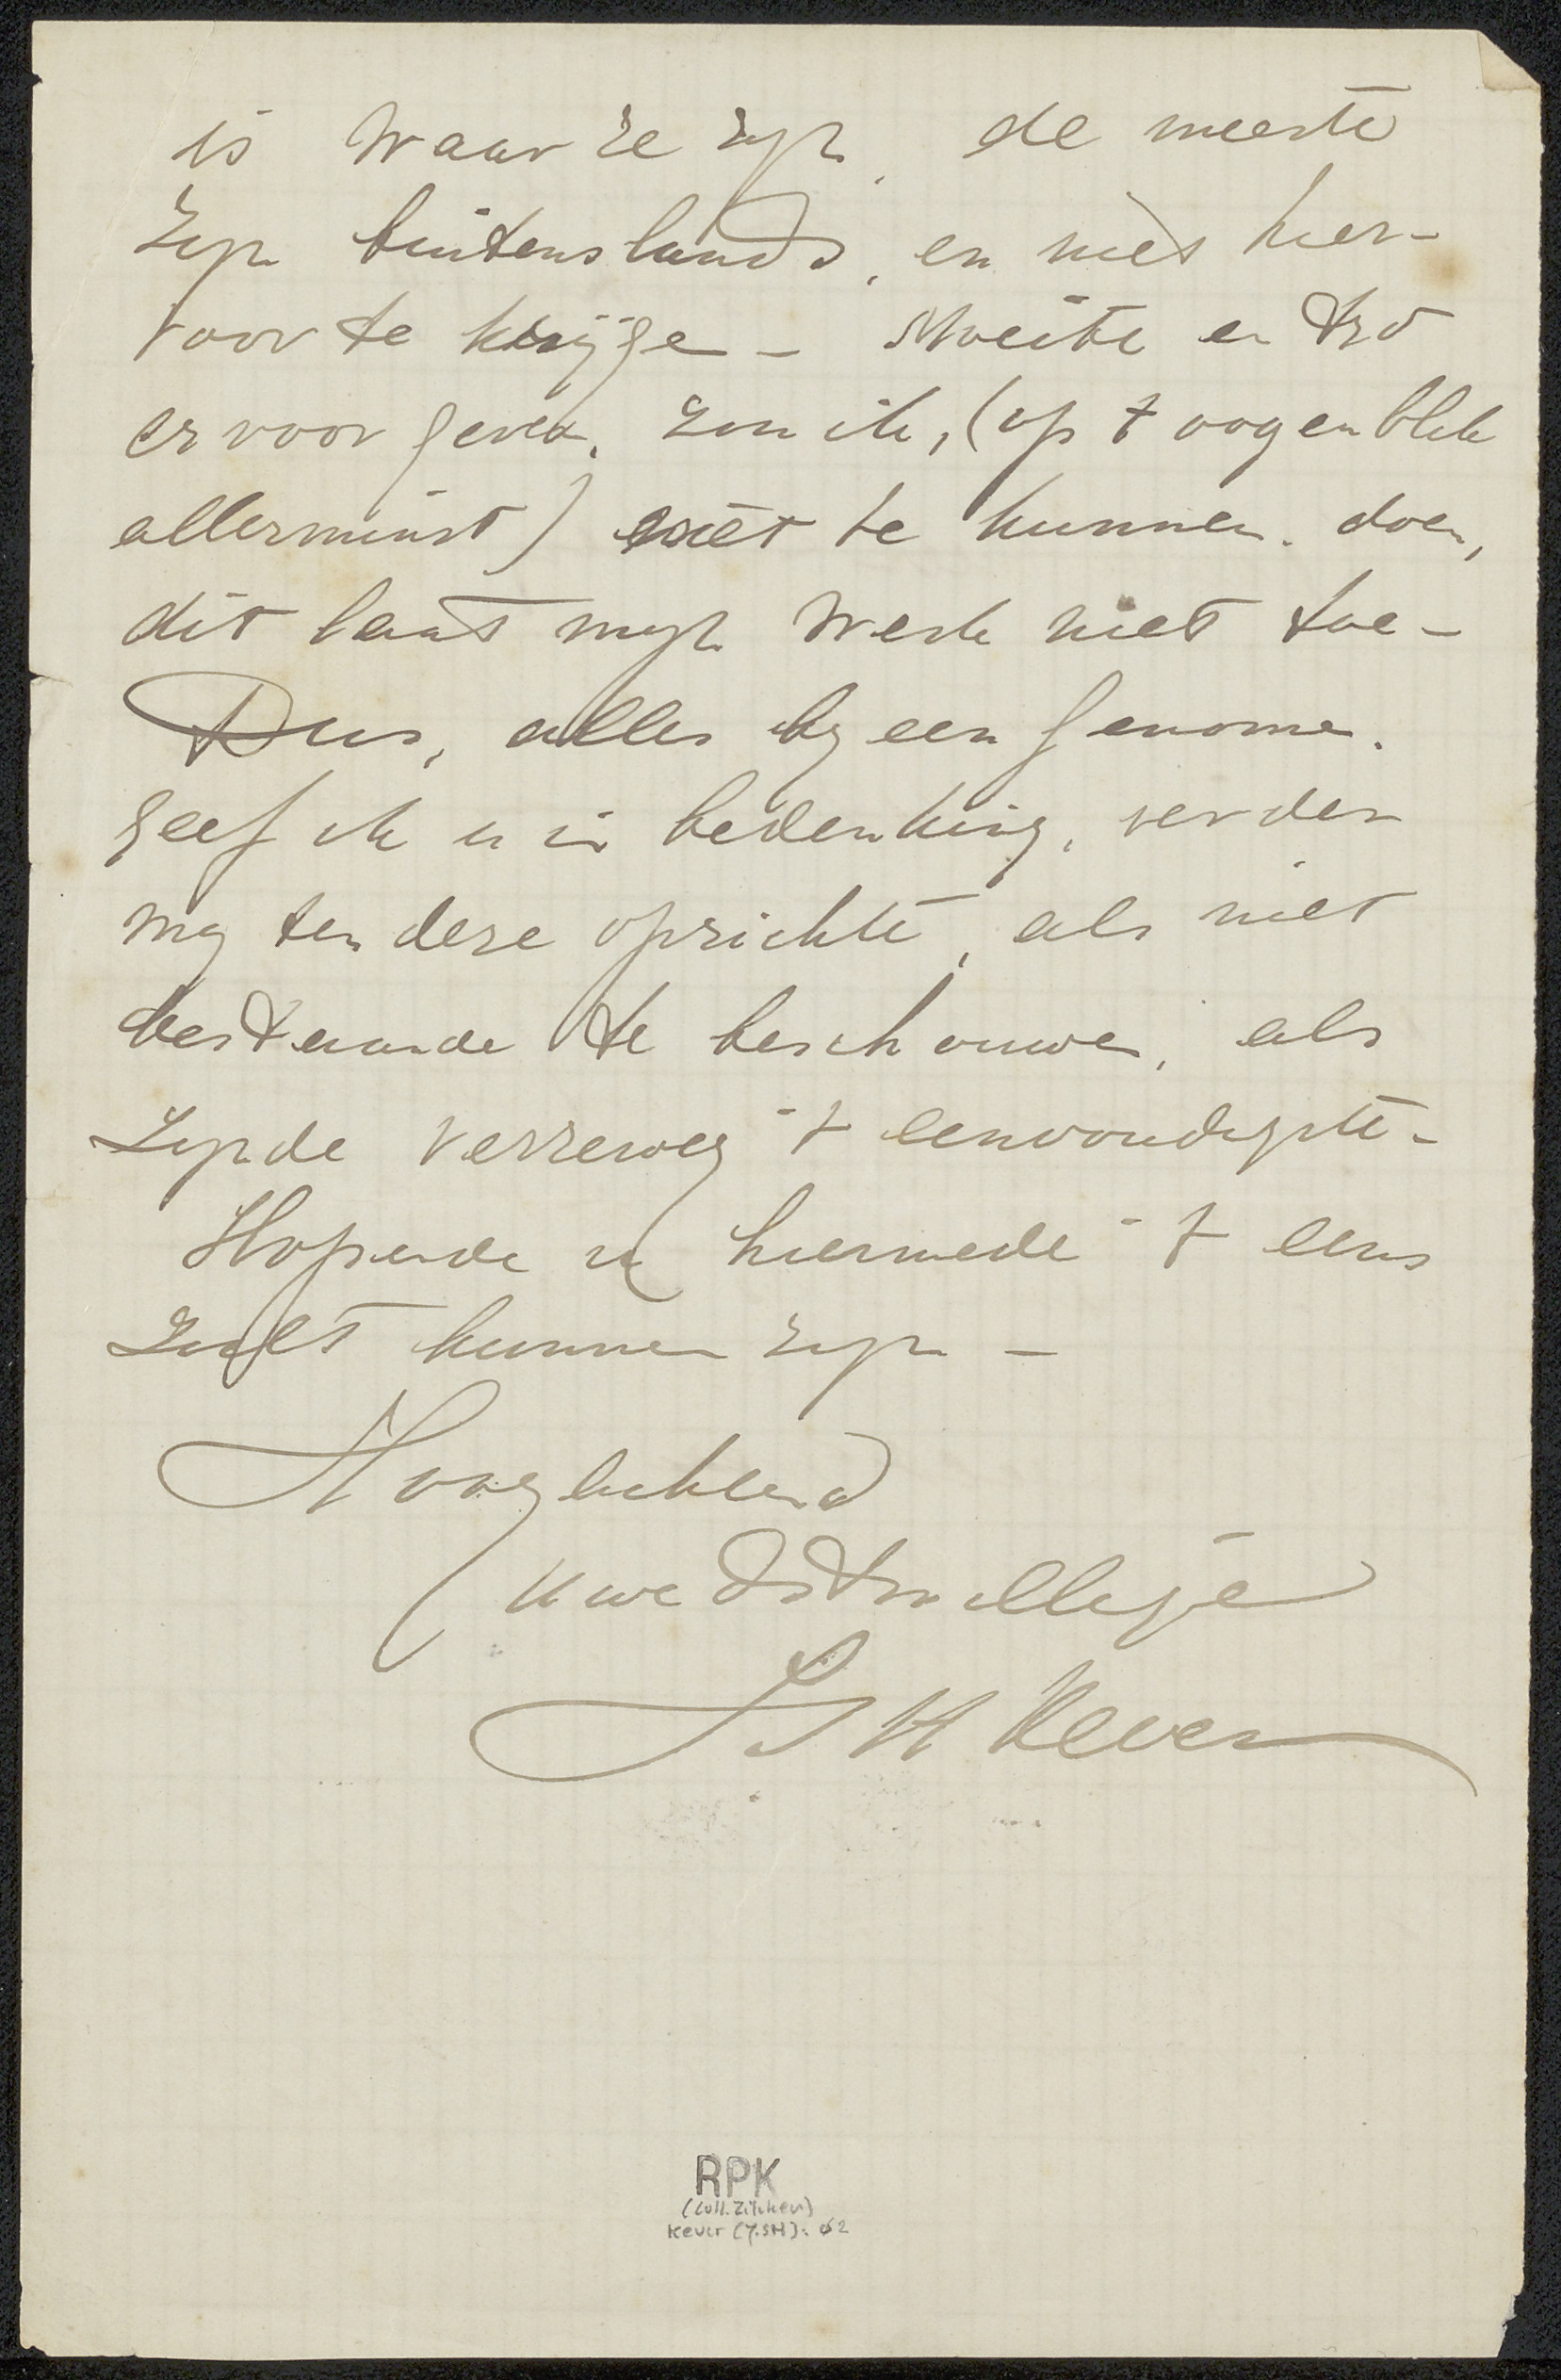 is waar ze zyn, de meeste
zyn buitenslands, en niet hier-
voor te krijge - Moeite en tyd
er voor geven, zou ik, (op 't oogenblik
allerminst) niet te kunnen doen,
dit laat myn werk niet toe -
Dus, alles by een genome.
geef ik u in bedenking, verder
my ten deze opzichte, als niet
bestaande te beschouwen, als
zynde verreweg 't eenvoudigste -
Hopende u hiermede 't eens
zult kunnen zyn -
Hoogachtend
uwe dstwillige
J S H Kever
RPK
(Coll. Zilcken)
Kever (J.SH): 62